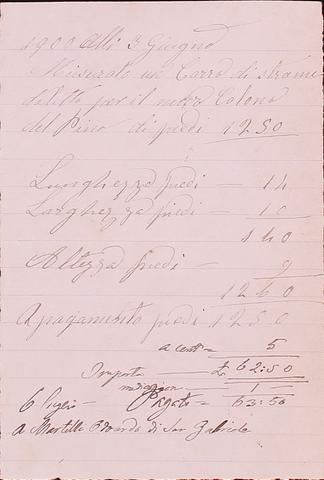 1900 Alli 3 Giugno
Misurato un Carro di strame
da letto per il nuovo Colono
del Pino di piedi 1250
Lunghezza piedi — 14
Larghezza piedi — 10
140
Altezza piedi — 9
1260
A pagamento piedi 1250
a cent = 5
Importo £ 62:50
misurazione 1 —
6 Luglio — Pagato = 63:50
A Martelli Edoardo di San Gabriele